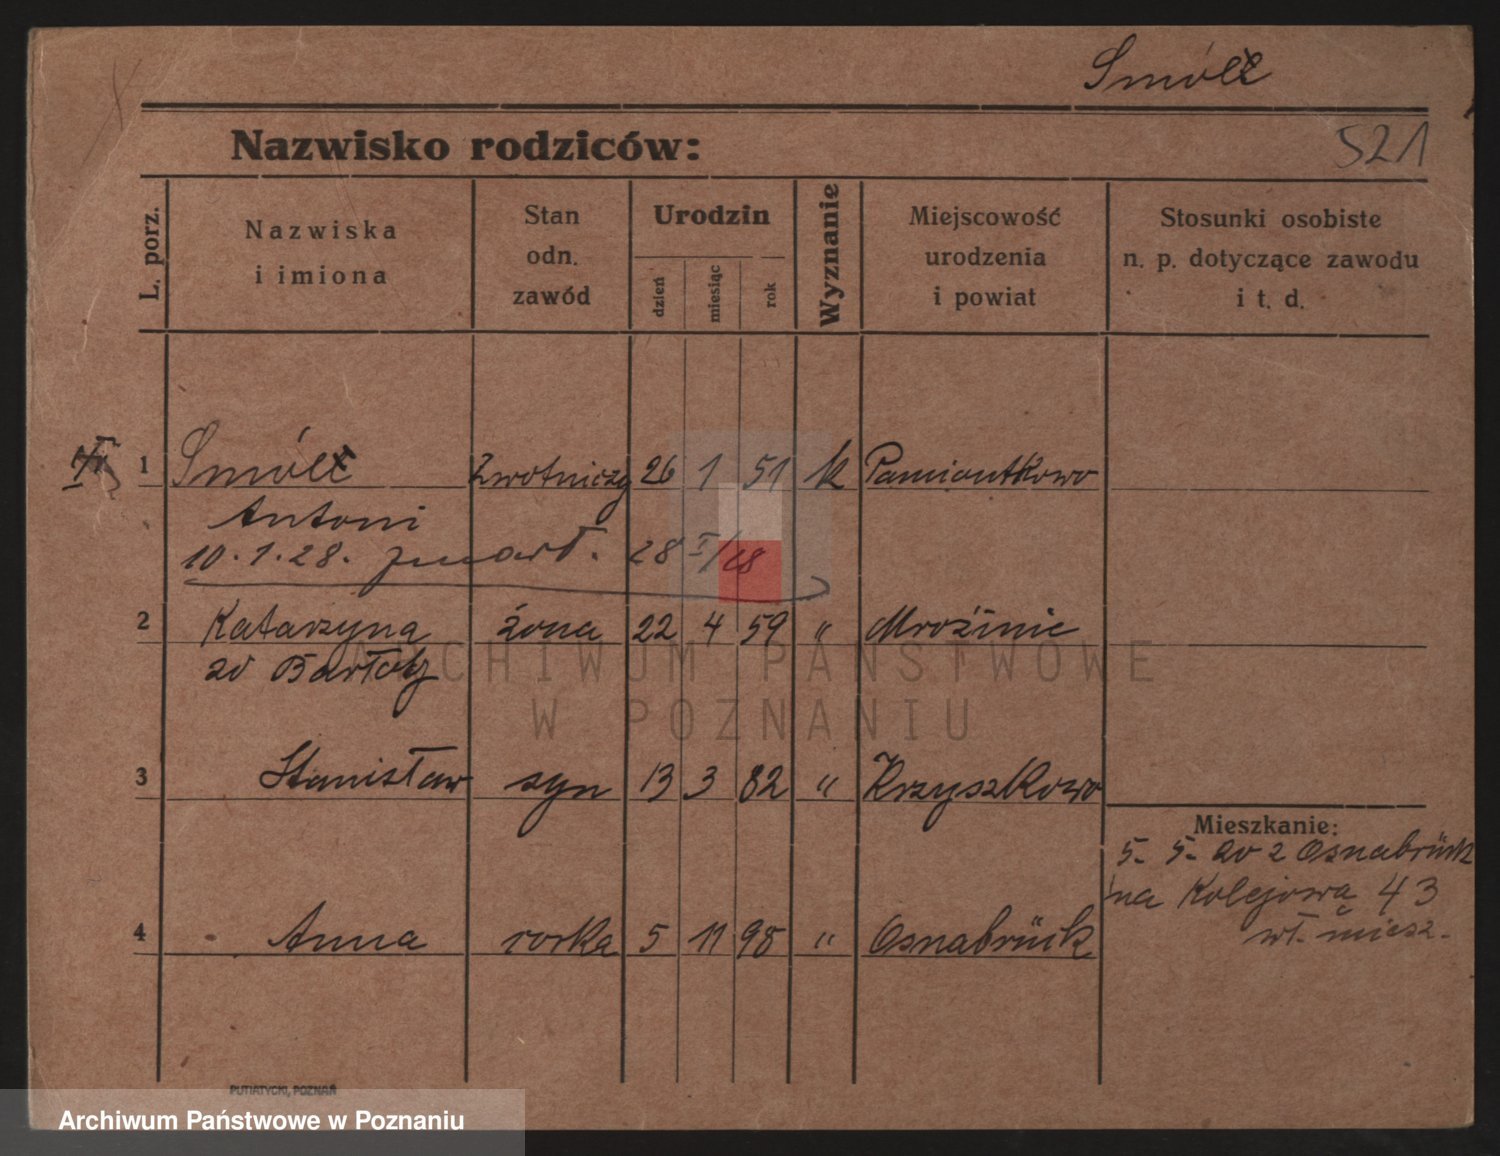 Smólz
521
Nazwisko rodziców:
L. porz.
Nazwiska
i imiona
Stan
odn.
zawód
Urodzin
dzień
miesiąc
rok
Wyznanie
Miejscowość
urodzenia
i powiat
Stosunki osobiste
n. p. dotyczące zawodu
i t. d.
1 Smól Zwotniczy 26 1 51 k Pamiontkowo
Antoni
10.1.28. zmarł. 28 I/28
2 Katarzyna żona 22 4 59 " Mroźinie
zd Bartolz
3 Stanisław syn 13 3 82 " Krzyszkowo
Mieszkanie:
5. 5. 20 z Osnabrück
na Kolejowa 43
wł. miesz.
4 Anna corka 5 11 98 " Osnabrück
PUTIATYCKI, POZNAŃ
ARCHIWUM PAŃSTWOWE
W POZNANIU
Archiwum Państwowe w Poznaniu